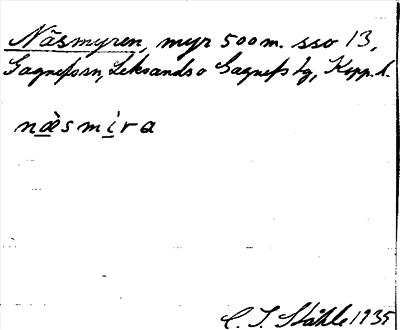 Näsmyren, myr 500 m. sso 13,
Gagnefs sn, Leksands o Gagnefs tg, Kopp. l.
næ̀smira
C. I. Ståhle 1935